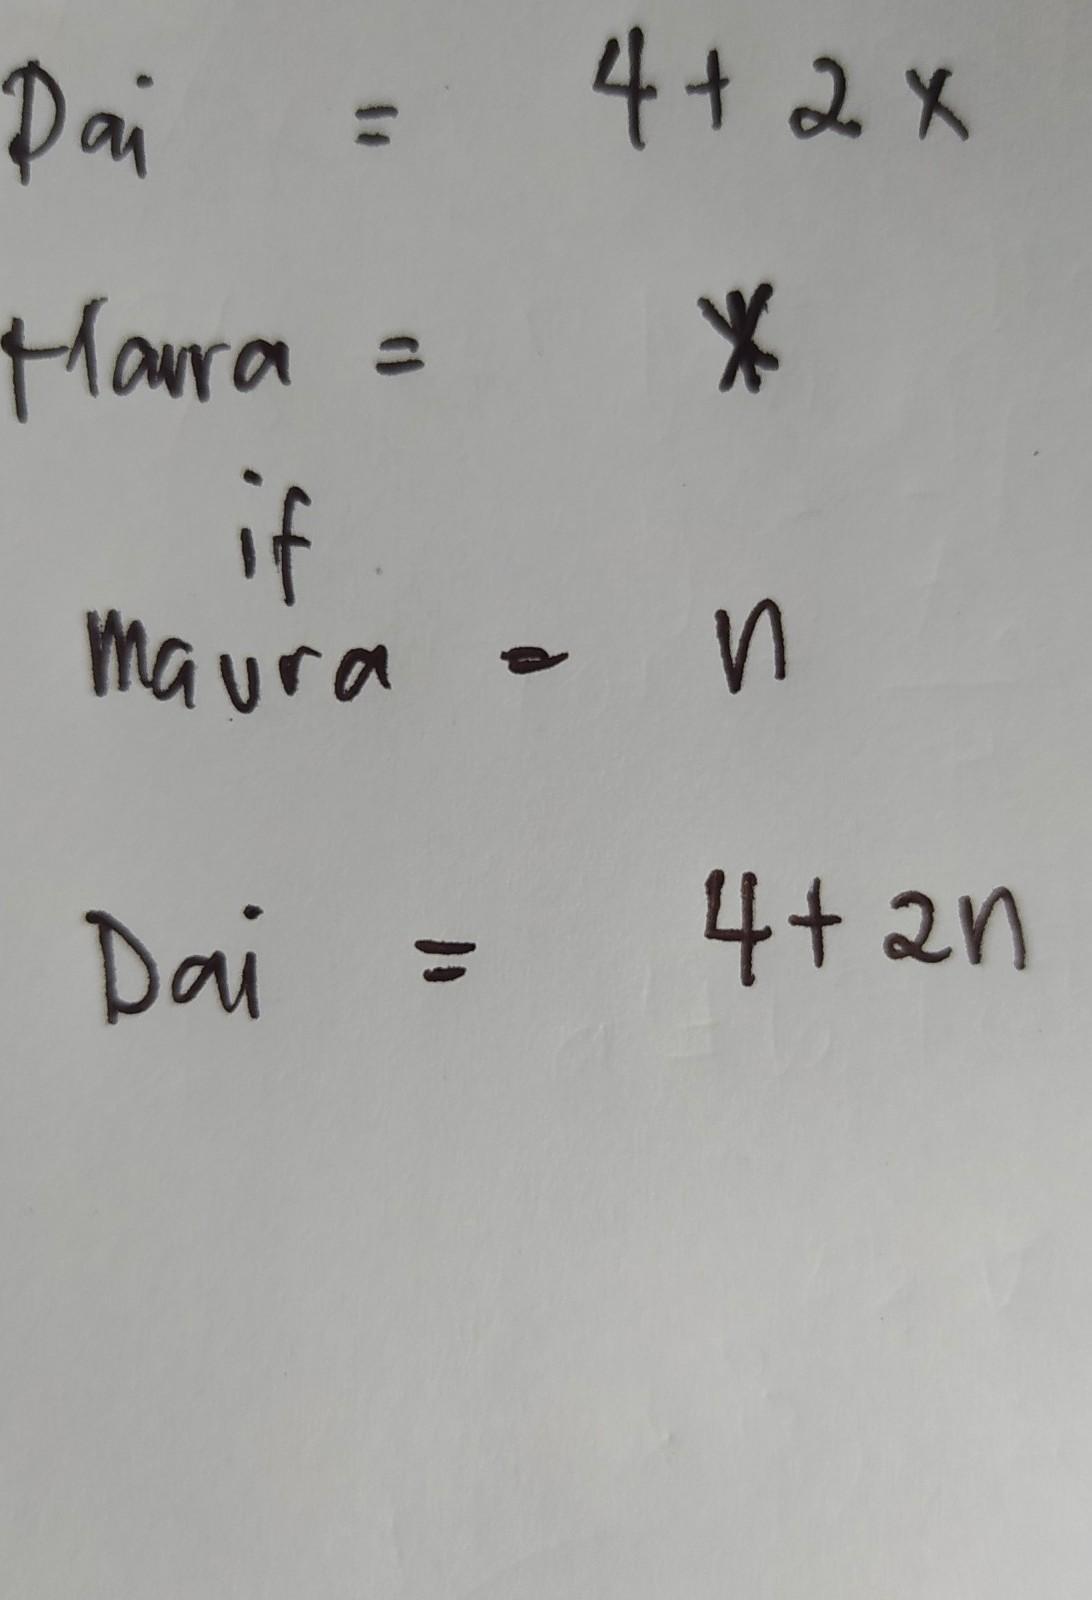 Dai = 4 + 2x
Maura = x
if
Maura = n
Dai = 4 + 2n